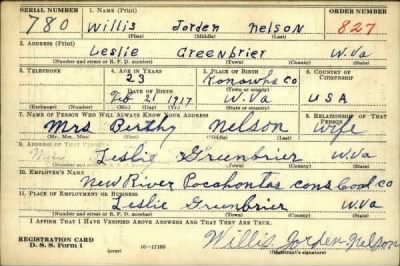 SERIAL NUMBER 1. NAME (Print) ORDER NUMBER
780 Willis Jorden Nelson 827
(First) (Middle) (Last)
2. ADDRESS (Print)
Leslie Greenbrier W.Va
(Number and street or R. F. D. number) (Town) (County) (State)
3. TELEPHONE 4. AGE IN YEARS 5. PLACE OF BIRTH 6. COUNTRY OF CITIZENSHIP
23 Kanawha CO
DATE OF BIRTH (Town or county)
Feb 21 1917 W.Va USA
(Exchange) (Number) (Mo.) (Day) (Yr.) (State or country)
7. NAME OF PERSON WHO WILL ALWAYS KNOW YOUR ADDRESS 8. RELATIONSHIP OF THAT PERSON
Mrs Berthy Nelson Wife
(Mr., Mrs., Miss) (First) (Middle) (Last)
9. ADDRESS OF THAT PERSON
Leslie Greenbrier W.Va
(Number and street or R. F. D. number) (Town) (County) (State)
10. EMPLOYER'S NAME
New River Pocahontas Cons Coal CO
11. PLACE OF EMPLOYMENT OR BUSINESS
Leslie Greenbrier W.Va
(Number and street or R. F. D. number) (Town) (County) (State)
I AFFIRM THAT I HAVE VERIFIED ABOVE ANSWERS AND THAT THEY ARE TRUE.
REGISTRATION CARD
D. S. S. Form 1 (over) 16—17105 Willis Jorden Nelson
(Registrant's signature)